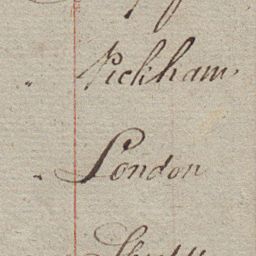 " Pickham
" London